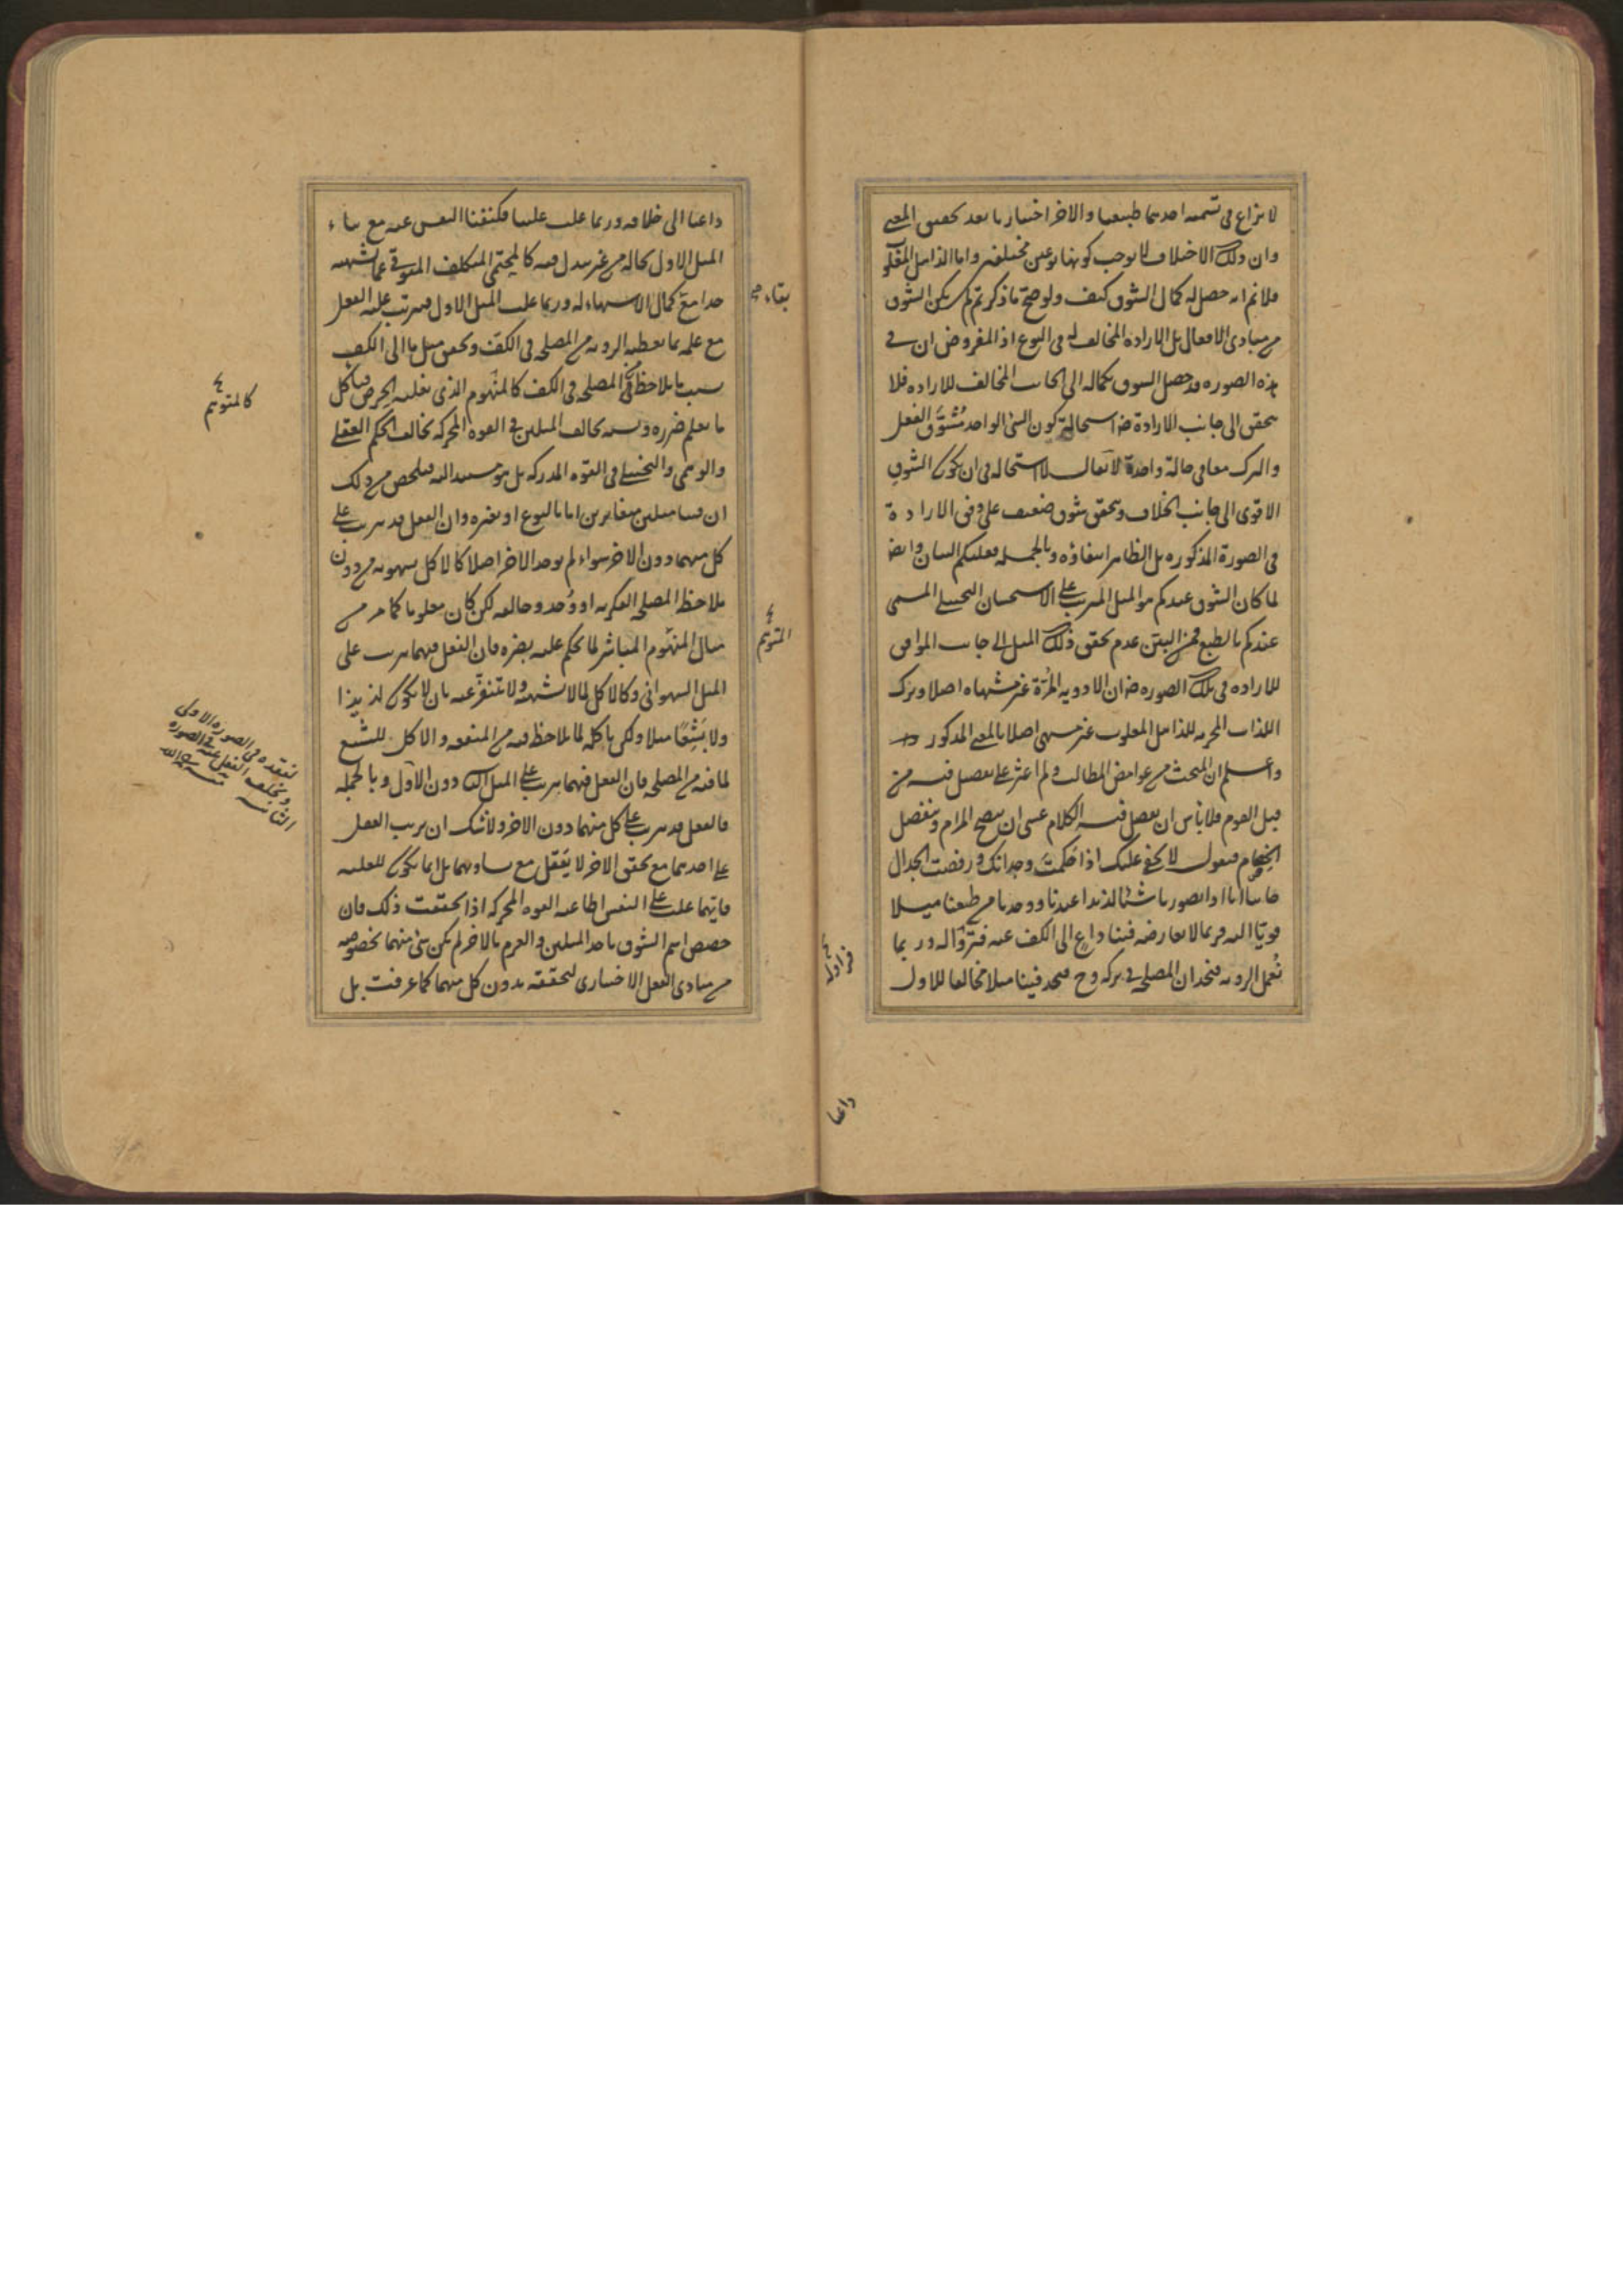 لا نزاع فى تسميه احدهما طبيعيا والاخر اختياريا بعد تحقيق المعنى
وان ذلك الاختلاف لا يوجب كونهما نوعين مختلفين واما الذاهل المغلوب
فلانم انه حصل له كمال الشوق كيف ولو صح ما ذكرتم لم يكن الشوق
من مبادى الافعال بل الاراده المخالف له فى النوع اذ المفروض ان فى
هذه الصوره قد حصل الشوق بكماله الى الجانب المخالف للاراده فلا
يتحقق الى جانب الارادة ضه استحالة كون الشئ الواحد مشوق الفعل
والترك معا فى حالة واحدة لا يقال لا استحاله فى ان يكون الشوق
الاقوى الى جانب الخلاف ويتحقق شوق ضعيف على وفق الارادة
فى الصورة المذكوره بل الظاهر انتفاؤه وبالجمله فعليكم البيان وايضا
لما كان الشوق عندكم هو الميل المترتب على الاستحسان التخيلى المسمى
عندكم بالطبع فمن البين عدم تحقق ذلك الميل الى جانب الموافق
للاراده فى تلك الصوره ضه ان الادويه المرة غير مشتهاه اصلا وترك
اللذات المحرمه للذاهل المغلوب غير مشتهى اصلا بالمعنى المذكور
واعلم ان المبحث من غوامض المطالب ولم اعثر على تفصيل فيه من
قبل القوم فلا باس ان نفصل فيه الكلام عسى ان يتضح المرام وينفصل
الخصام فنقول لا يخفى عليك اذا حكمت وجدانك ورفضت الجدال
جانبا انا اذا تصورنا شيئا لذيذا عندنا ووجدنا من طبعنا ميلا
قويا اليه فربما لا يعارضه فينا داع الى الكف عنه فنزاوله وربما
نعمل الرويه فنجد ان المصلحه فى تركه وح فنجد فينا ميلا مخالفا للاول
فنزاوله
داعيا
داعيا الى خلافه وربما غلب علينا فكففنا النفس عنه مع بقاء
الميل الاول بحاله من غير تبدل فيه كالمحتمى المتكلف المتوقى عما يشتهيه
جدا مع كمال الاشتهاء له وربما غلب الميل الاول فيترتب عليه الفعل
مع علمه بما تعطيه الرويه من المصلحه فى الكف وتحقق ميل ما الى الكف
بسبب ما يلاحظ من المصلحه فى الكف كالمنهوم الذى يغلبه الحرص فياكل
ما يعلم ضرره ونسبه تخالف الميلين فى القوه المحركه تخالف الحكم العقلى
والوهمى والتخيلى فى القوه المدركه بل هو مستند اليه فتلخص من ذلك
ان فينا ميلين متغايرين اما بالنوع او بغيره وان الفعل قد يترتب على
كل منهما دون الاخر سواء لم يوجد الاخر اصلا كالاكل بشهوته من دون
ملاحظه المصلحه الفكريه او وُجد وخالفه لكن كان مغلوبا كما مر من
مثال المنهوم المباشر لما يحكم عليه بضره فان الفعل فيهما يترتب على
الميل الشهوانى وكالاكل لما لا يشتهيه ولا يتنفر عنه بان لا يكون لذيذا
ولا بشعًا مثلا ولكن ياكله لما يلاحظ فيه من المنفعه والاكل للشبع
لما فيه من المصلحه فان الفعل فيهما يترتب على الميل الثانى دون الاول وبالجمله
فالفعل قد يترتب على كل منهما دون الاخر ولا شك ان ترتب الفعل
على احدهما مع تحقق الاخر لا يُعقل مع تساويهما بل انما يكون للغلبه
فايهما غلب على النفس اطاعته القوه المحركه اذا تحققت ذلك فان
خصص اسم الشوق باحد الميلين والعزم بالاخر لم يكن شئ منهما بخصوصه
من مبادى الفعل الاختيارى لتحققه بدون كل منهما كما عرفت بل
بقاء صح
كالمتوهم
المتوهم
لفقده فى الصورة الاولى
وتخلف الفعل عنه فى الصوره
الثانيه منه رحمه الله